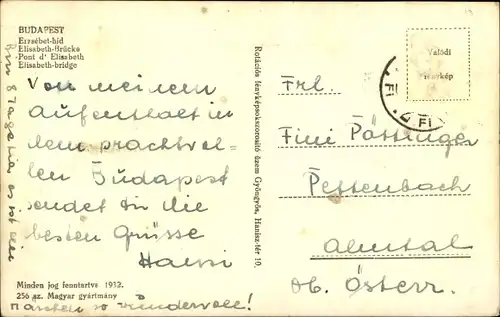 BUDAPEST
Erzsébet-hid
Elisabeth-Brücke
Pont d' Elisabeth
Elisabeth-bridge
Von meinem
Aufenthalt in
dem prachtvol-
len Budapest
sendet dir die
besten Grüsse
Hansi
Bin 8 Tage hier es ist ein
Märchen so wundervoll!
Minden jog fenntartva 1932.
256 sz. Magyar gyártmány
Rotációs fényképsokszorosító üzem Gyöngyös, Hanisz-tér 10.
Valódi
fénykép
FI
FI
Frl.
Fini Pöttinger
Pettenbach
Almtal
ob. Österr.